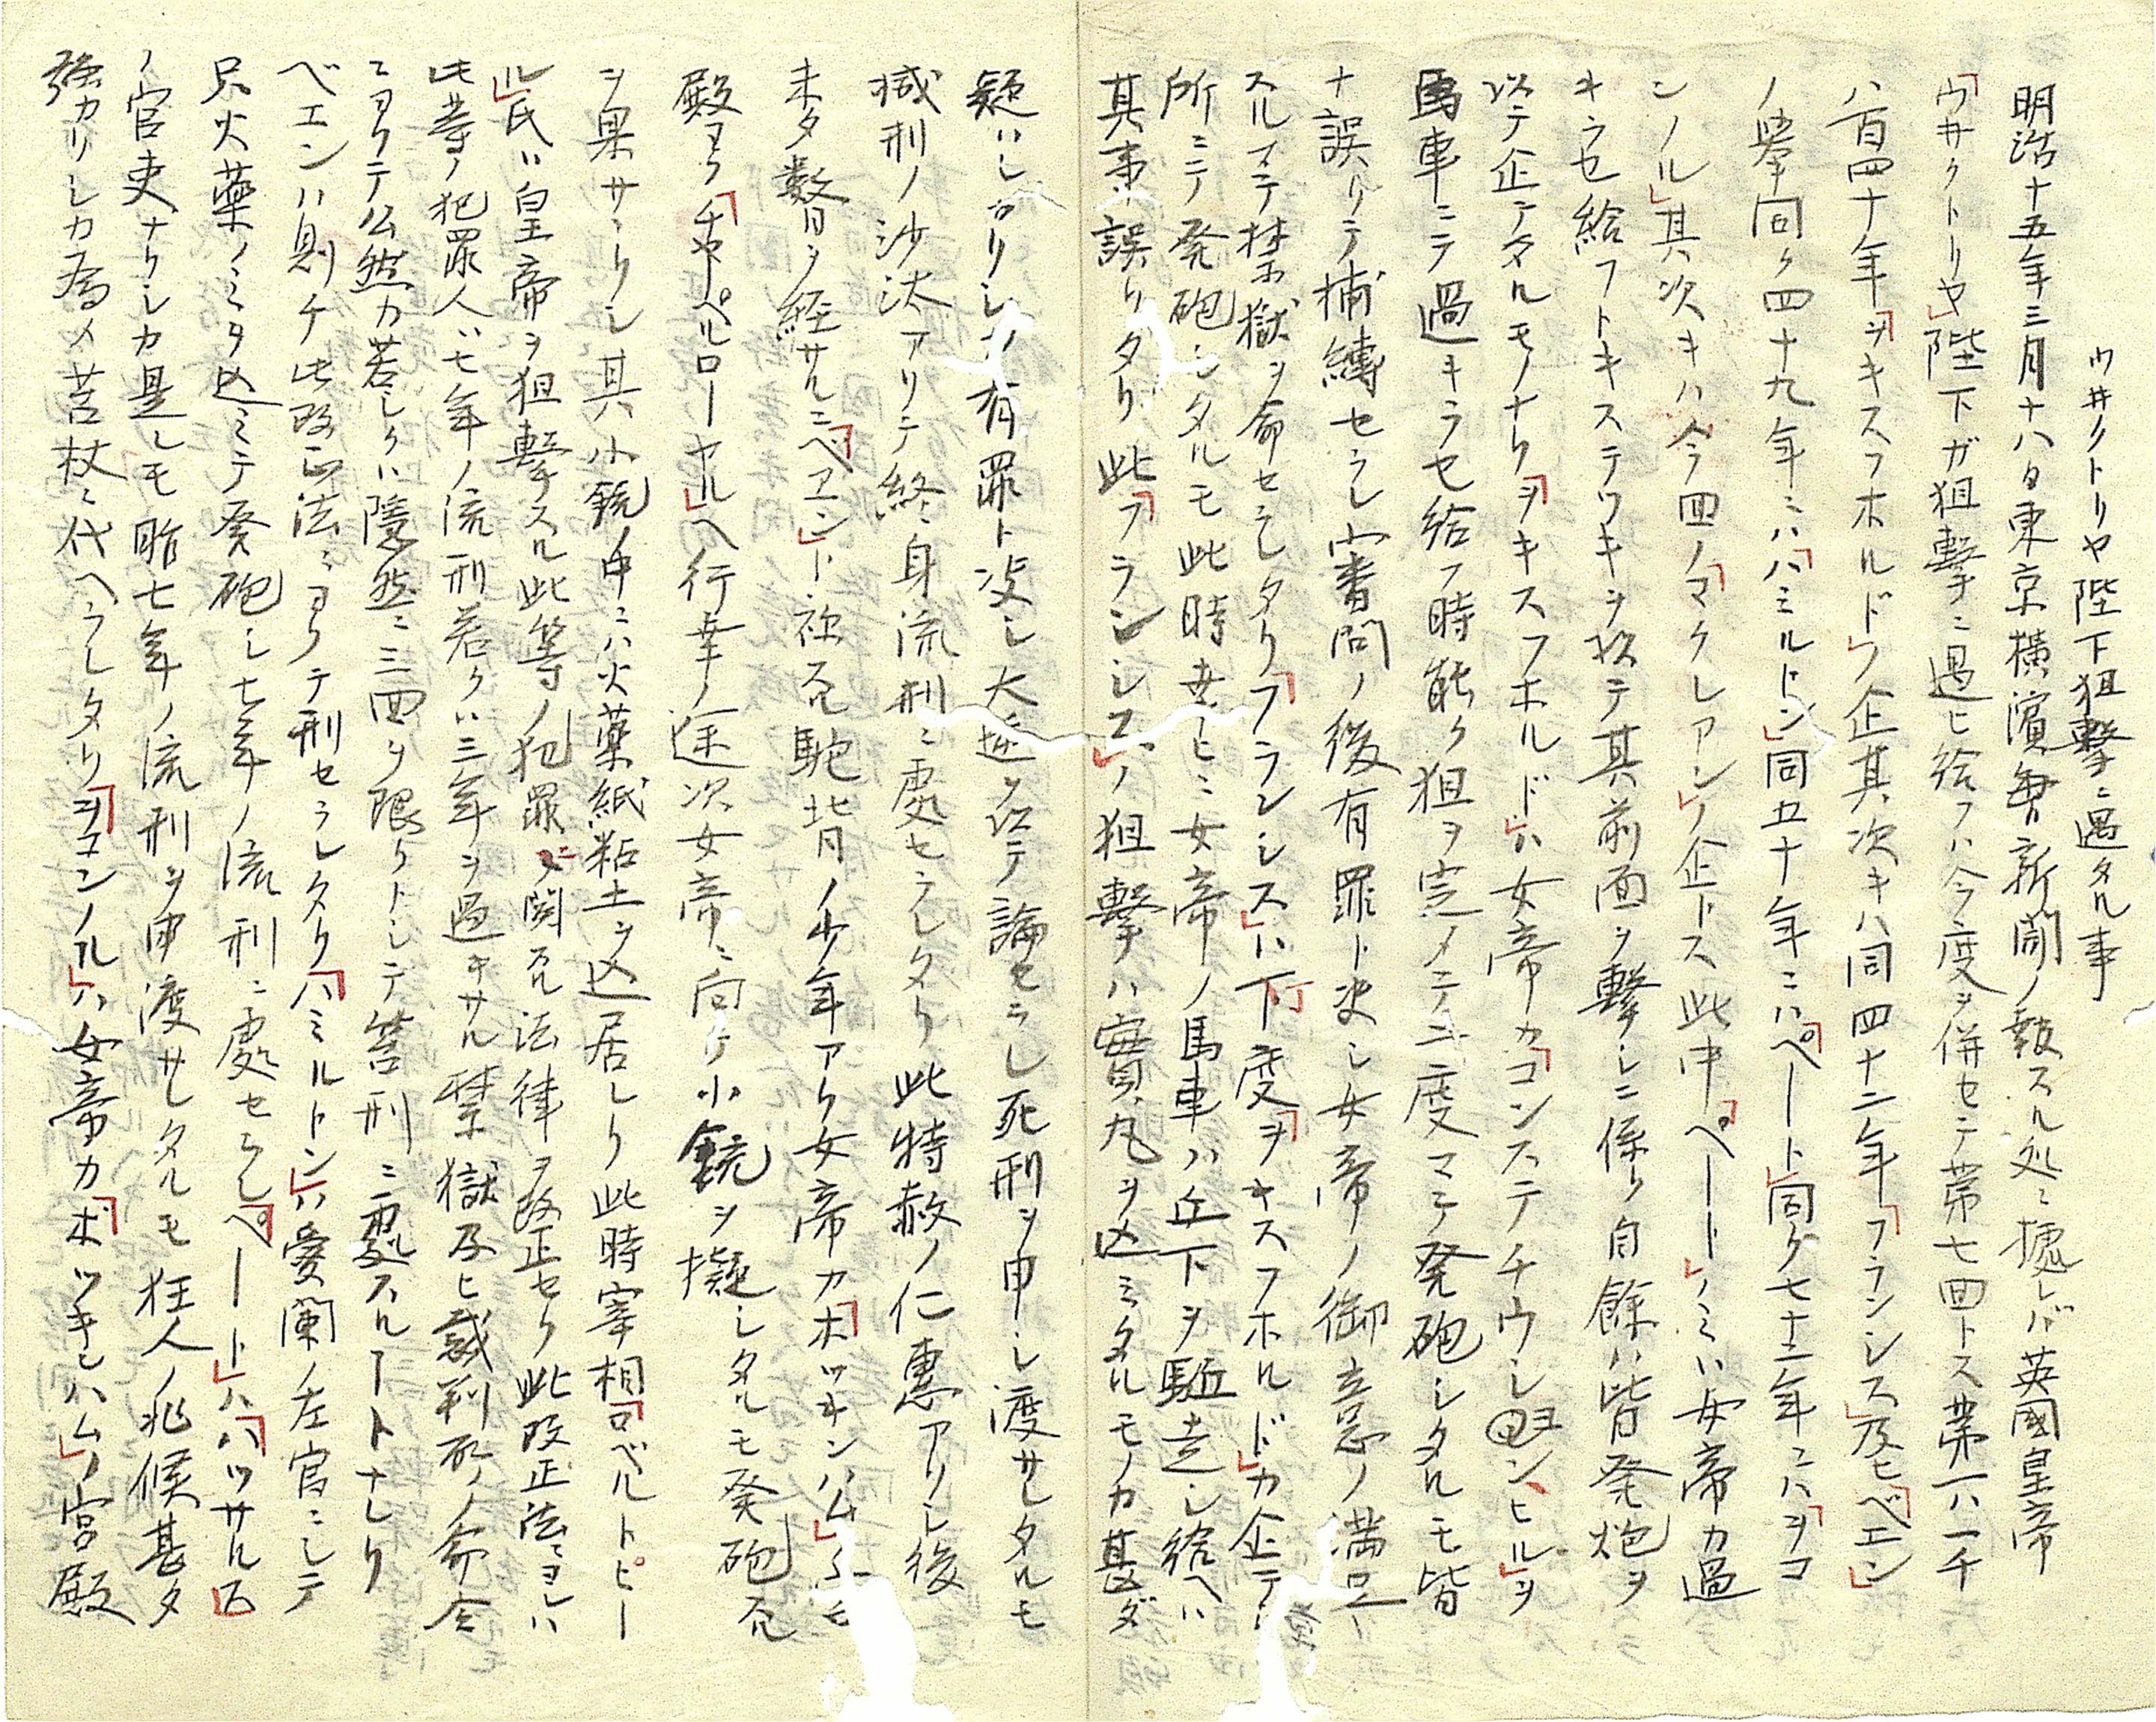 ウ井クトリヤ陛下狙撃ニ遇タル事
明治十五年三月十八日東京横濱毎日新聞ノ報スル処ニ據レバ英國皇帝
「ウ井クトリヤ」陛下ガ狙撃ニ遇ヒ給フハ今度ヲ併セテ第七回トス第一ハ一千
八百四十年「ヲキスフホルド」ノ企其次キハ同四十二年「フランシス」及ヒ「ベエン」
ノ挙同ク四十九年ニハ「ハミルトン」同五十年ニハ「ペート」同ク七十二年ニハ「ヲコ
ンノル」其次キハ今回ノ「マクレアン」ノ企トス此中「ペート」ノミハ女帝カ過
キラセ給フトキステツキヲ以テ其前面ヲ撃シニ係リ自餘ハ皆発炮ヲ
以テ企テタルモノナリ「ヲキスフホルド」ハ女帝カ「コンステチウションヒル」ヲ
馬車ニテ過キラセ給フ時能ク狙ヲ定メテ二度マテ発砲シタルモ皆
ナ誤リテ捕縛セラレ審問ノ後有罪ト決シ女帝ノ御意ノ満
スルマテ禁獄ヲ命セラレタリ「フランシス」ハ下度「ヲキスフホルド」カ企テシ
所ニテ発砲シタルモ此時幸ヒニ女帝ノ馬車ハ丘下ヲ駈走シ給ヘハ
其事誤リタリ此「フランシス」ノ狙撃ハ實丸ヲ込ミタルモノカ甚ダ
疑ハしカリシカ有罪ト決シ大逆ヲ以テ論セラレ死刑ヲ申シ渡サレタルモ
減刑ノ沙汰アリテ終身流刑ニ處セラレタリ此特赦ノ仁惠アリシ後
未タ数日ヲ経サルニ「ベエン」ト称スル駝背ノ少年アリ女帝カ「ボツキンハム」宮
殿ヨリ「チヤペルローヤル」ヘ行幸ノ途次女帝ニ向ケ小銃ヲ擬シタルモ発砲スル
ヲ果サヽリシ其小銃ノ中ニハ火藥紙粘土ヲ込居レリ此時宰相「ロベルトピー
ル」氏ハ皇帝ヲ狙撃スル此等ノ犯罪ニ関スル法律ヲ改正セリ此改正法ニヨレハ
此等ノ犯罪人ハ七年ノ流刑若クハ三年ヲ過キサル禁獄及ヒ裁判所ノ命令
ニヨリテ公然カ若しクハ隠然ニ三四ヲ限リトシテ笞刑ニ處スルコトナレリ
ベエンハ則チ此改正法ニヨリテ刑セラレタリ「ハミルトン」ハ愛蘭ノ左官ニシテ
只火藥ノミヲ込ミテ発砲シ七年ノ流刑ニ處セラレ「ペート」ハ「ハツサル」隊
ノ官吏ナリシカ是レモ亦七年ノ流刑ヲ申渡サレタルモ狂人ノ兆候甚タ
強カリシカ為メ笞杖ニ代ヘラレタリ「ヲコンノル」ハ女帝カ「ボツキンハム」ノ宮殿